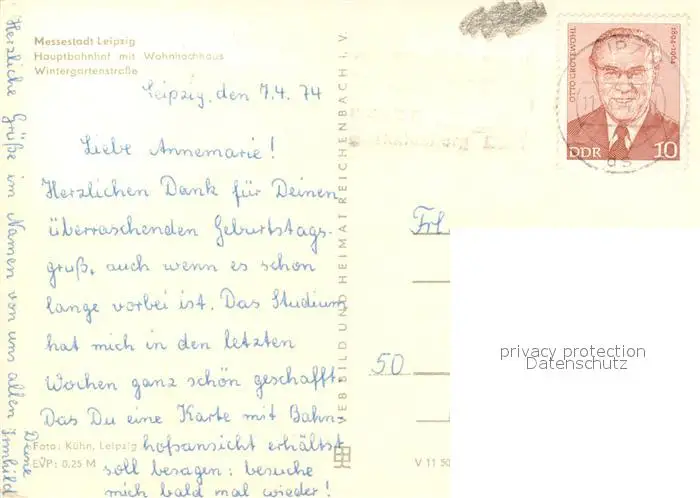 Messestadt Leipzig
Hauptbahnhof mit Wohnhochhaus
Wintergartenstraße
Leipzig, den 7.4. 74
Liebe Annemarie!
Herzlichen Dank für Deinen
überraschenden Geburtstags-
gruß, auch wenn es schon
lange vorbei ist. Das Studium
hat mich in den letzten
Wochen ganz schön geschafft.
Das Du eine Karte mit Bahn-
hofsansicht erhältst
soll besagen: besuche
mich bald mal wieder!
Herzliche Grüße im Namen von uns allen
Deine
Irmhild
Foto: Kühn, Leipzig
EVP: 0,25 M
VEB BILD UND HEIMAT REICHENBACH I. V.
V 11 50
OTTO GROTEWOHL
1894-1964
DDR 10
Frl.
50
privacy protection
Datenschutz